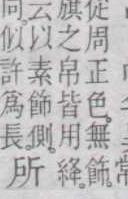 常
從周正色。無飾。
旗之帛皆用絳。
云以素飾側。
似許爲長。
所